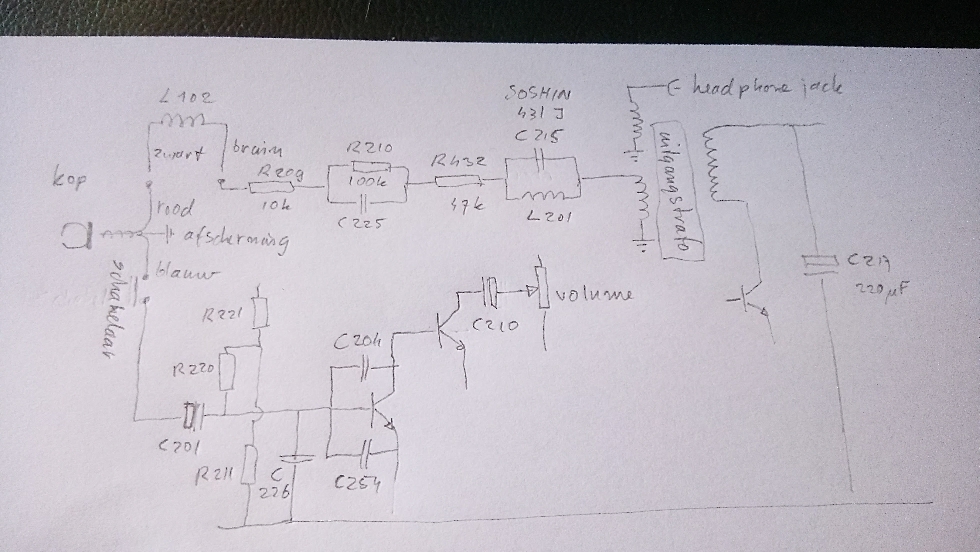 L102
zwart
bruin
kop
rood
afscherming
blauw
schakelaar
R209
10k
R210
100k
C225
R432
47k
SOSHIN
431J
C215
L201
headphone jack
uitgangstrafo
C217
220µF
volume
C210
R221
R220
C204
C201
R211
C
226
C254